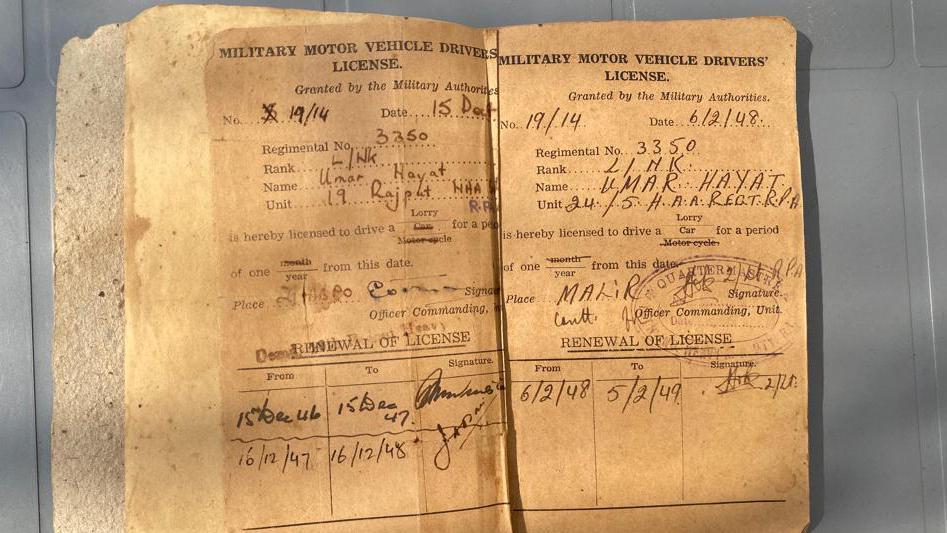 MILITARY MOTOR VEHICLE DRIVERS
LICENSE.
Granted by the Military Authorities
No. 19/14 Date 15 Dec
Regimental No. 3350
Rank L/NK
Name Umar Hayat
Unit 19 Rajput HAA
is hereby licensed to drive a Lorry Car Motor cycle for a
of one month year from this date.
Place
Officer Commanding,
RENEWAL OF LICENSE
From To Signature.
15 Dec 46 15 Dec 47.
16/12/47 16/12/48
MILITARY MOTOR VEHICLE DRIVERS'
LICENSE.
Granted by the Military Authorities.
No. 19/14 Date 6/2/48.
Regimental No. 3350
Rank L/NK.
Name UMAR HAYAT
Unit 24/5 H.A.A. REGT. R.P.A
is hereby licensed to drive a Lorry Car Motor cycle. for a period
of one month year from this date.
QUARTERMASTER
Place MALIR Signature.
Cantt. Officer Commanding, Unit.
RENEWAL OF LICENSE
From To Signature.
6/2/48 5/2/49